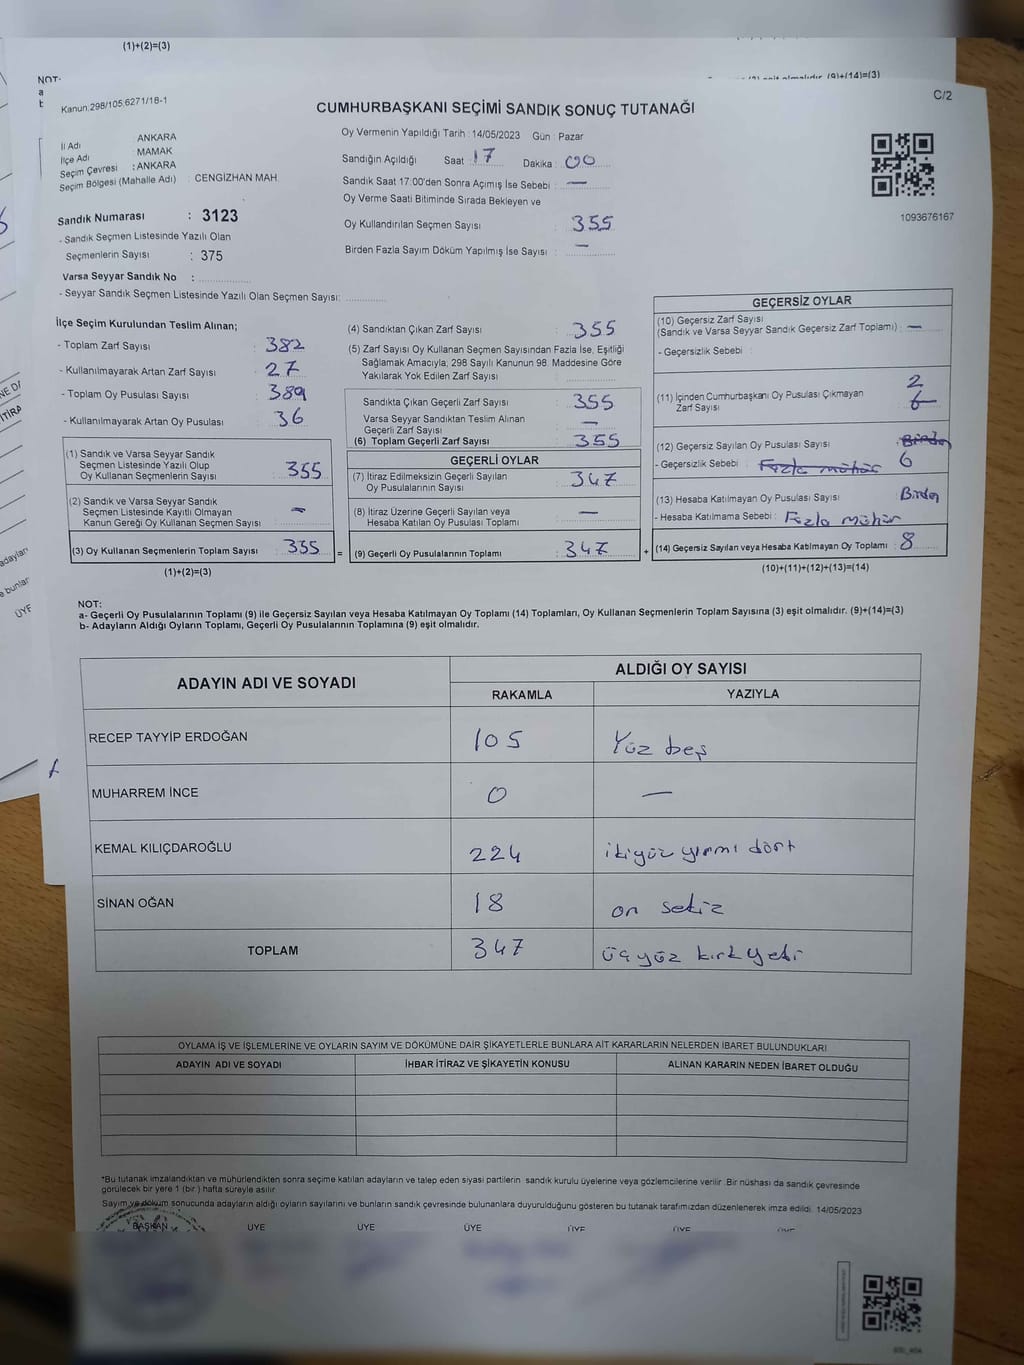 (1)+(2)=(3)
NOT:
(9)+(14)=(3)
C/2
Kanun:298/105,6271/18-1
CUMHURBAŞKANI SEÇİMİ SANDIK SONUÇ TUTANAĞI
İl Adı : ANKARA
İlçe Adı : MAMAK
Seçim Çevresi : ANKARA
Seçim Bölgesi (Mahalle Adı) : CENGİZHAN MAH.
Oy Vermenin Yapıldığı Tarih : 14/05/2023 Gün : Pazar
Sandığın Açıldığı Saat : 17 Dakika : 00
Sandık Saat 17:00'den Sonra Açımış İse Sebebi : —
Oy Verme Saati Bitiminde Sırada Bekleyen ve
Oy Kullandırılan Seçmen Sayısı : 355
Birden Fazla Sayım Döküm Yapılmış İse Sayısı : —
1093676167
Sandık Numarası : 3123
- Sandık Seçmen Listesinde Yazılı Olan
Seçmenlerin Sayısı : 375
Varsa Seyyar Sandık No :
- Seyyar Sandık Seçmen Listesinde Yazılı Olan Seçmen Sayısı:
İlçe Seçim Kurulundan Teslim Alınan;
- Toplam Zarf Sayısı : 382
- Kullanılmayarak Artan Zarf Sayısı : 27
- Toplam Oy Pusulası Sayısı : 389
- Kullanılmayarak Artan Oy Pusulası : 36
(1) Sandık ve Varsa Seyyar Sandık
Seçmen Listesinde Yazılı Olup
Oy Kullanan Seçmenlerin Sayısı : 355
(2) Sandık ve Varsa Seyyar Sandık
Seçmen Listesinde Kayıtlı Olmayan
Kanun Gereği Oy Kullanan Seçmen Sayısı : —
(3) Oy Kullanan Seçmenlerin Toplam Sayısı : 355 =
(1)+(2)=(3)
(4) Sandıktan Çıkan Zarf Sayısı : 355
(5) Zarf Sayısı Oy Kullanan Seçmen Sayısından Fazla İse, Eşitliği
Sağlamak Amacıyla, 298 Sayılı Kanunun 98. Maddesine Göre
Yakılarak Yok Edilen Zarf Sayısı :
Sandıkta Çıkan Geçerli Zarf Sayısı : 355
Varsa Seyyar Sandıktan Teslim Alınan
Geçerli Zarf Sayısı : —
(6) Toplam Geçerli Zarf Sayısı : 355
GEÇERLİ OYLAR
(7) İtiraz Edilmeksizin Geçerli Sayılan
Oy Pusulalarının Sayısı : 347
(8) İtiraz Üzerine Geçerli Sayılan veya
Hesaba Katılan Oy Pusulası Toplamı : —
(9) Geçerli Oy Pusulalarının Toplamı : 347 +
GEÇERSİZ OYLAR
(10) Geçersiz Zarf Sayısı
(Sandık ve Varsa Seyyar Sandık Geçersiz Zarf Toplamı) : —
- Geçersizlik Sebebi :
(11) İçinden Cumhurbaşkanı Oy Pusulası Çıkmayan 2
Zarf Sayısı : 6
(12) Geçersiz Sayılan Oy Pusulası Sayısı : Birden
- Geçersizlik Sebebi : Fazla mühür 6
(13) Hesaba Katılmayan Oy Pusulası Sayısı : Birden
- Hesaba Katılmama Sebebi : Fazla mühür
(14) Geçersiz Sayılan veya Hesaba Katılmayan Oy Toplamı : 8
(10)+(11)+(12)+(13)=(14)
NOT:
a- Geçerli Oy Pusulalarının Toplamı (9) ile Geçersiz Sayılan veya Hesaba Katılmayan Oy Toplamı (14) Toplamları, Oy Kullanan Seçmenlerin Toplam Sayısına (3) eşit olmalıdır. (9)+(14)=(3)
b- Adayların Aldığı Oyların Toplamı, Geçerli Oy Pusulalarının Toplamına (9) eşit olmalıdır.
ADAYIN ADI VE SOYADI ALDIĞI OY SAYISI
RAKAMLA YAZIYLA
RECEP TAYYİP ERDOĞAN 105 Yüz beş
MUHARREM İNCE 0 —
KEMAL KILIÇDAROĞLU 224 ikiyüz yirmi dört
SİNAN OĞAN 18 on sekiz
TOPLAM 347 üçyüz kırk yedi
OYLAMA İŞ VE İŞLEMLERİNE VE OYLARIN SAYIM VE DÖKÜMÜNE DAİR ŞİKAYETLERLE BUNLARA AİT KARARLARIN NELERDEN İBARET BULUNDUKLARI
ADAYIN ADI VE SOYADI İHBAR İTİRAZ VE ŞİKAYETİN KONUSU ALINAN KARARIN NEDEN İBARET OLDUĞU
*Bu tutanak imzalandıktan ve mühürlendikten sonra seçime katılan adayların ve talep eden siyasi partilerin sandık kurulu üyelerine veya gözlemcilerine verilir .Bir nüshası da sandık çevresinde
görülecek bir yere 1 (bir ) hafta süreyle asılır.
Sayım ve döküm sonucunda adayların aldığı oyların sayılarını ve bunların sandık çevresinde bulunanlara duyurulduğunu gösteren bu tutanak tarafımızdan düzenlenerek imza edildi. 14/05/2023
BAŞKAN ÜYE ÜYE ÜYE ÜYE ÜYE